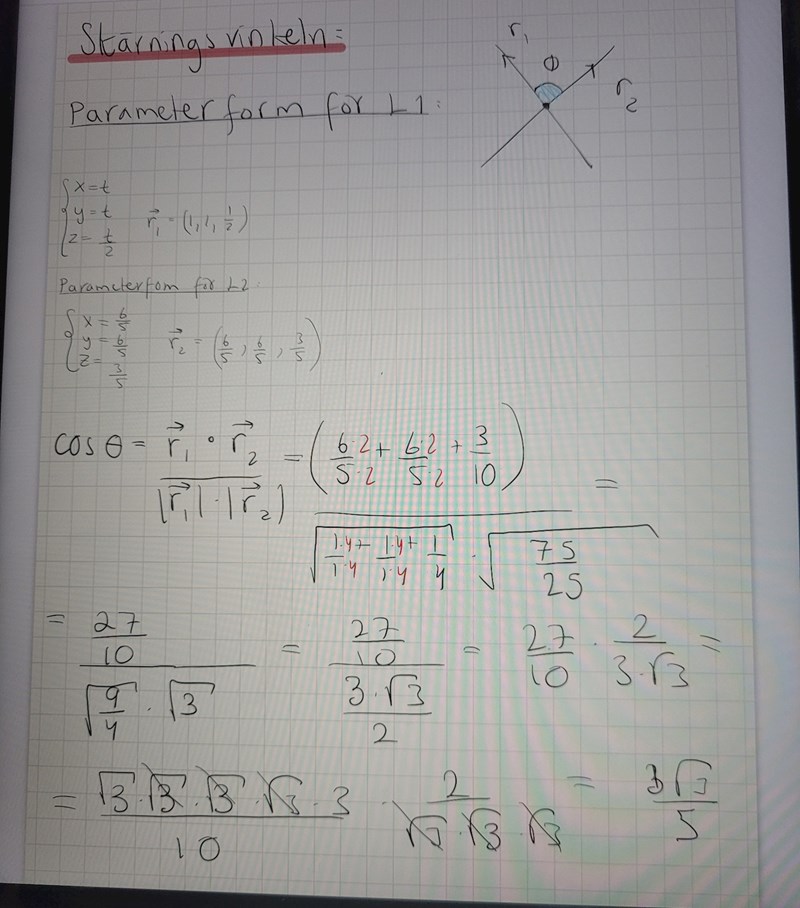 Skärningsvinkeln:
r₁ θ r₂
Parameterform för L1:
x = t
y = t
z = t/2
r⃗₁ = (1, 1, 1/2)
Parameterfom för L2
x = 6/5
y = 6/5
z = 3/5
r⃗₂ = (6/5, 6/5, 3/5)
cos θ = (r⃗₁ · r⃗₂)/(|r⃗₁| · |r⃗₂|) = (6·2/5·2 + 6·2/5·2 + 3/10)/(√(1·4/1·4 + 1·4/1·4 + 1/4) · √(75/25)) =
= (27/10)/(√(9/4) · √3) = (27/10)/(3·√3/2) = 27/10 · 2/(3·√3) =
= (√3·√3·√3·√3·3)/10 · 2/(√3·√3·√3) = 3√3/5